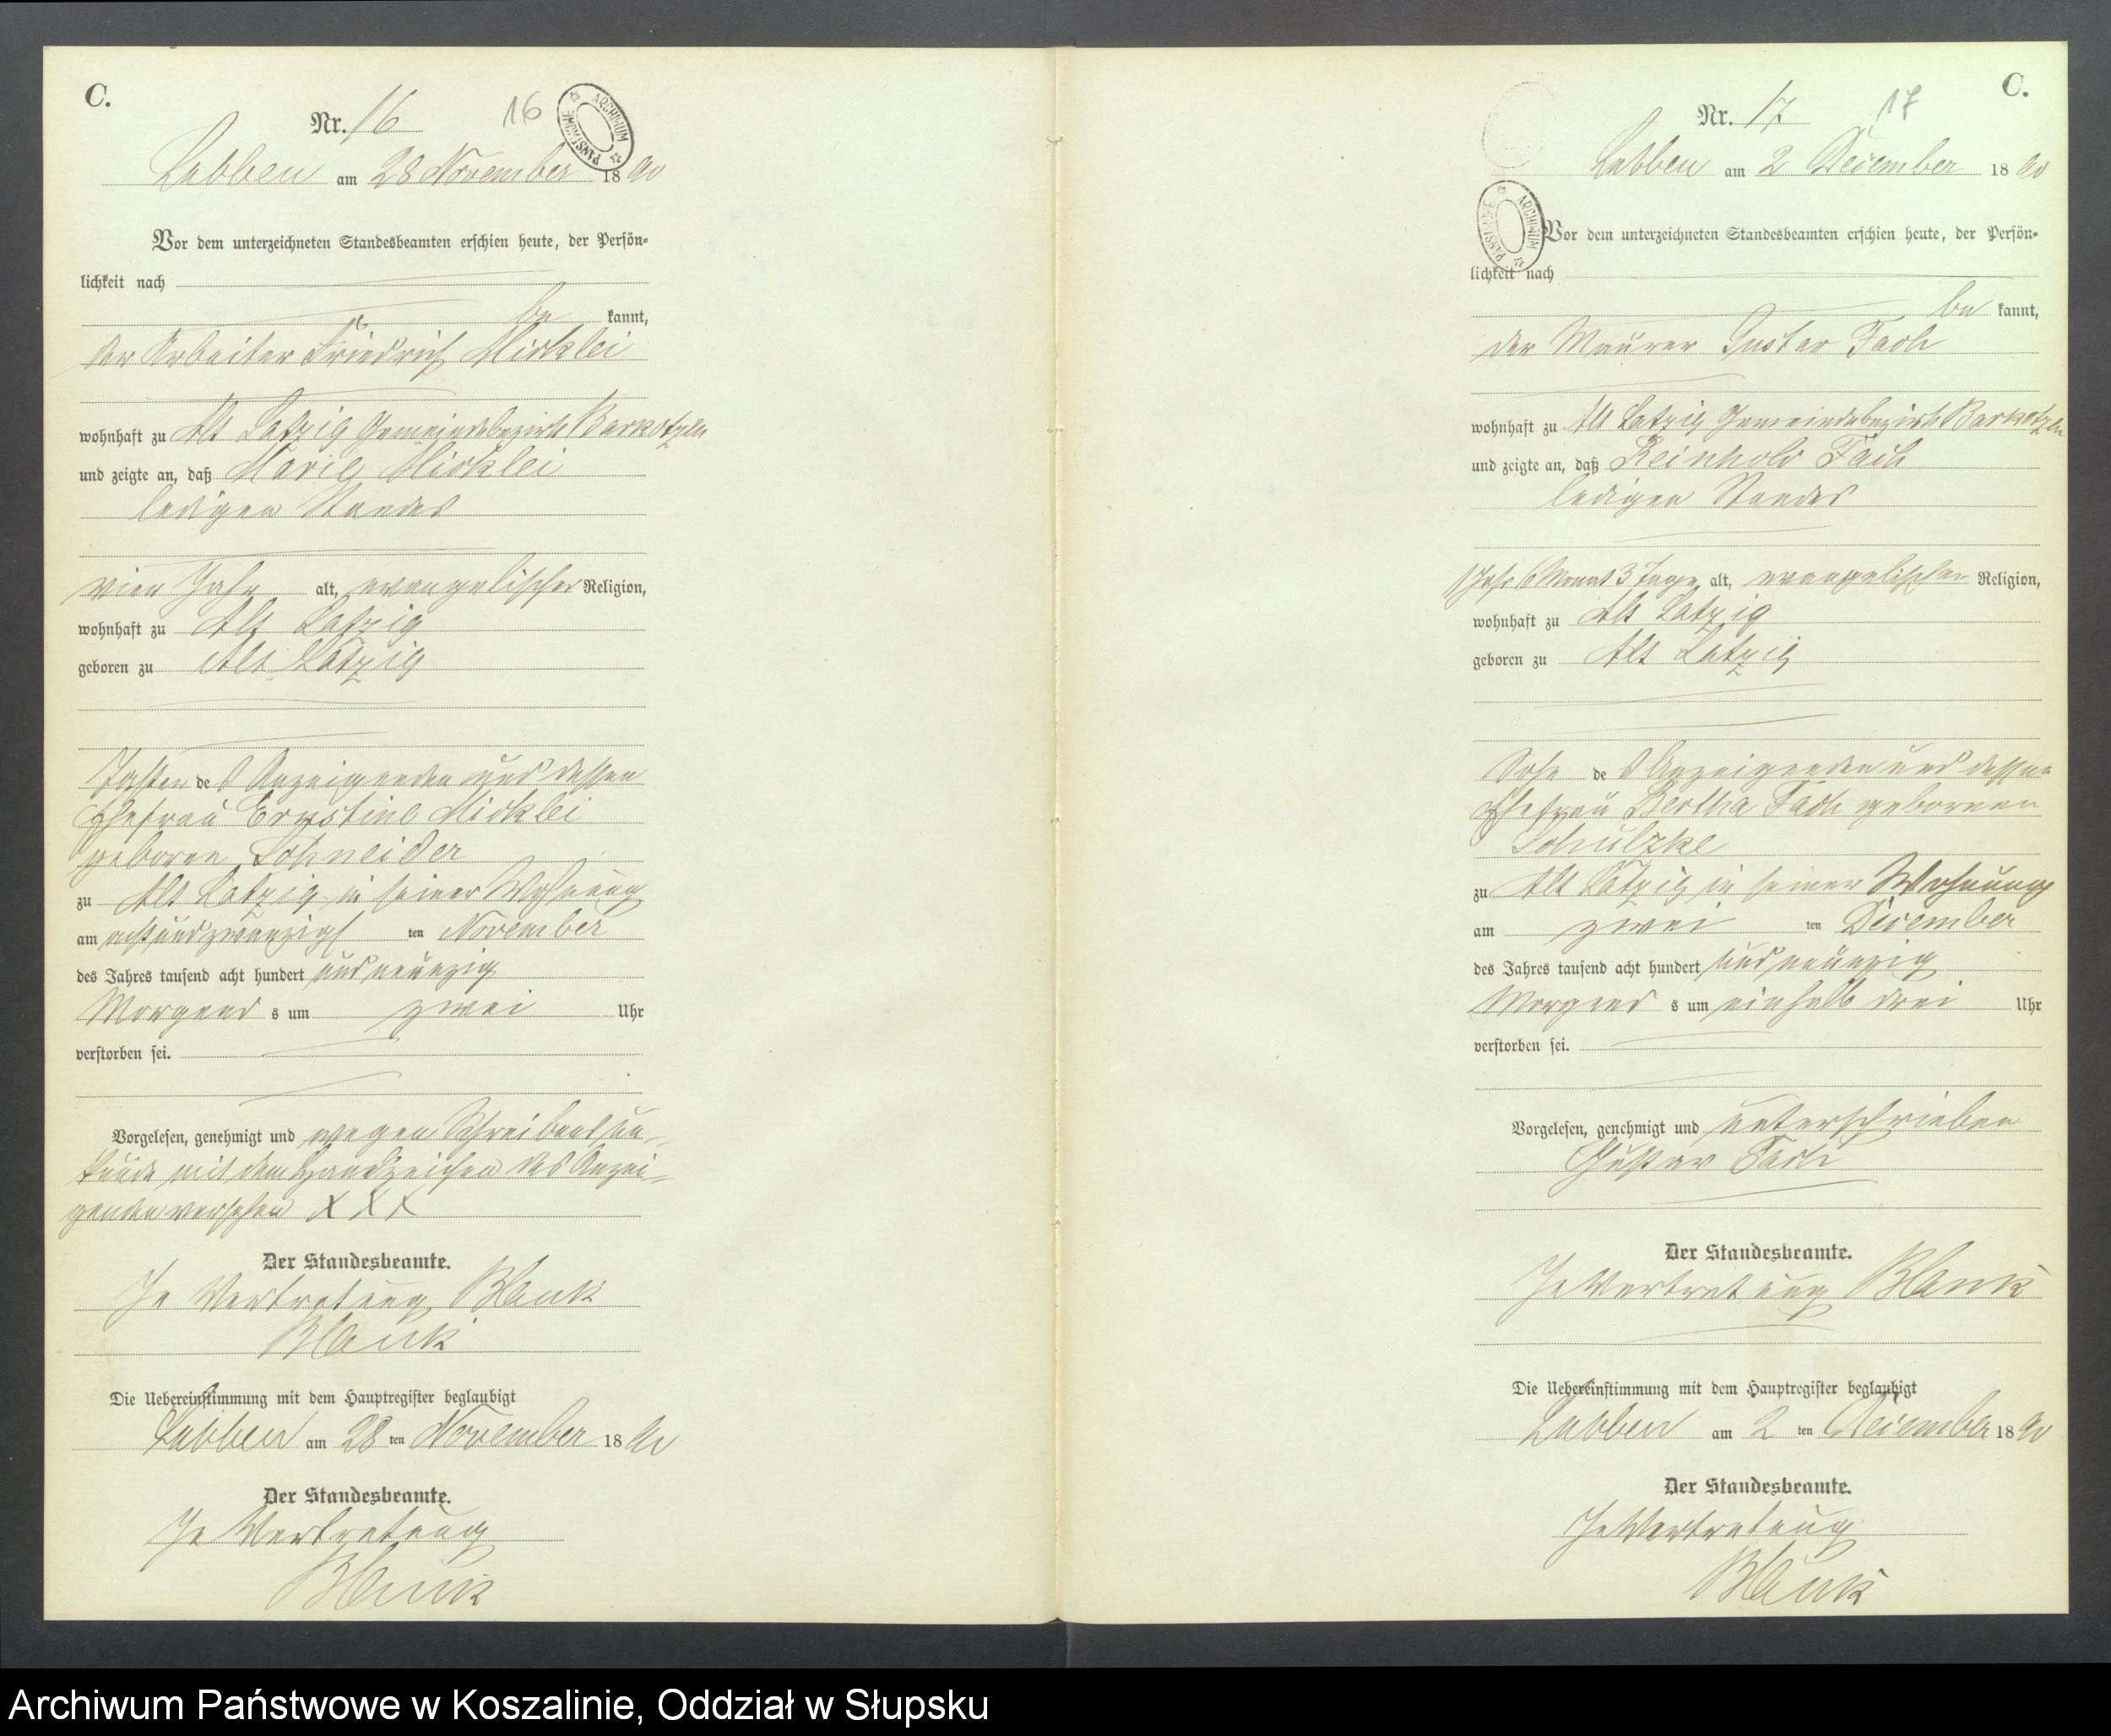 C.
Nr. 16
16
ARCHIWUM PAŃSTWOWE
Labben am 28 November 1890
Vor dem unterzeichneten Standesbeamten erschien heute, der Persön-
lichkeit nach
be kannt,
der Arbeiter Friedrich Micklei
wohnhaft zu Alt Latzig Gemeindebezirk Barkotzen
und zeigte an, daß Marie Micklei
ledigen Standes
vier Jahr alt, evangelischer Religion,
wohnhaft zu Alt Latzig
geboren zu Alt Latzig
Tochter des Anzeigenden und dessen
Ehefrau Ernstine Micklei
geboren Schneider
zu Alt Latzig in seiner Wohnung
am achtundzwanzigs ten November
des Jahres tausend acht hundert und neunzig
Morgends um zwei Uhr
verstorben sei.
Vorgelesen, genehmigt und wegen Schreibens un-
kunde mit dem Handzeichen des Anzei-
genden versehen X X X
Der Standesbeamte.
In Vertretung Blank
Blank
Die Uebereinstimmung mit dem Hauptregister beglaubigt
Labben am 28 ten November 1890
Der Standesbeamte.
In Vertretung
Blank
C.
Nr. 17
17
Labben am 2 December 1890
ARCHIWUM PAŃSTWOWE
Vor dem unterzeichneten Standesbeamten erschien heute, der Persön-
lichkeit nach
be kannt,
der Maurer Gustav Fach
wohnhaft zu Alt Latzig Gemeindebezirk Barkotzen
und zeigte an, daß Reinhold Fach
ledigen Standes
1 Jahr 6 Monat 3 Tage alt, evangelischer Religion,
wohnhaft zu Alt Latzig
geboren zu Alt Latzig
Sohn des Anzeigenden und dessen
Ehefrau Bertha Fach geborenen
Schulzke
zu Alt Latzig in seiner Wohnung
am zwei ten December
des Jahres tausend acht hundert und neunzig
Morgends um einhalb drei Uhr
verstorben sei.
Vorgelesen, genehmigt und unterschrieben
Gustav Fach
Der Standesbeamte.
In Vertretung Blank
Die Uebereinstimmung mit dem Hauptregister beglaubigt
Labben am 2 ten December 1890
Der Standesbeamte.
In Vertretung
Blank
Archiwum Państwowe w Koszalinie, Oddział w Słupsku